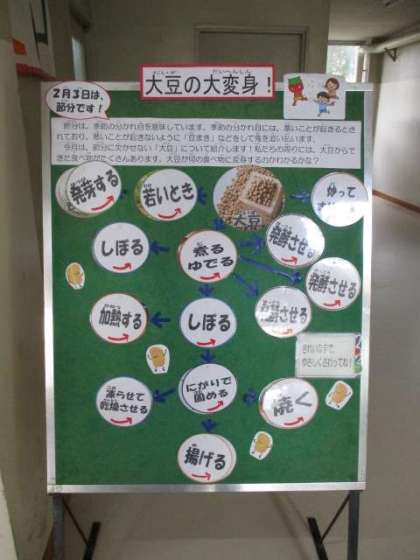 大豆の大変身！
２月３日は、
節分です！
節分は、季節の分かれ目を意味しています。季節の分かれ目には、悪いことが起きるとさ
れており、悪いことが起きないように「豆まき」などをして鬼を追い出します。
今月は、節分に欠かせない「大豆」について紹介します！私たちの周りには、大豆からで
きた食べ物がたくさんあります。大豆が何の食べ物に変身するかわかるかな？
発芽する
若いとき
大豆
炒って
しぼる
煮る
ゆでる
発酵させる
発酵させる
加熱する
しぼる
発酵させる
きれいな手で、
やさしくさわってね！
凍らせて
乾燥させる
にがりで
固める
焼く
揚げる